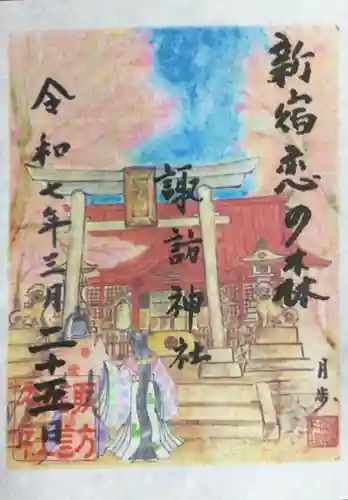 新宿恋の森
諏訪神社
令和七年三月二十五日
月歩
諏訪